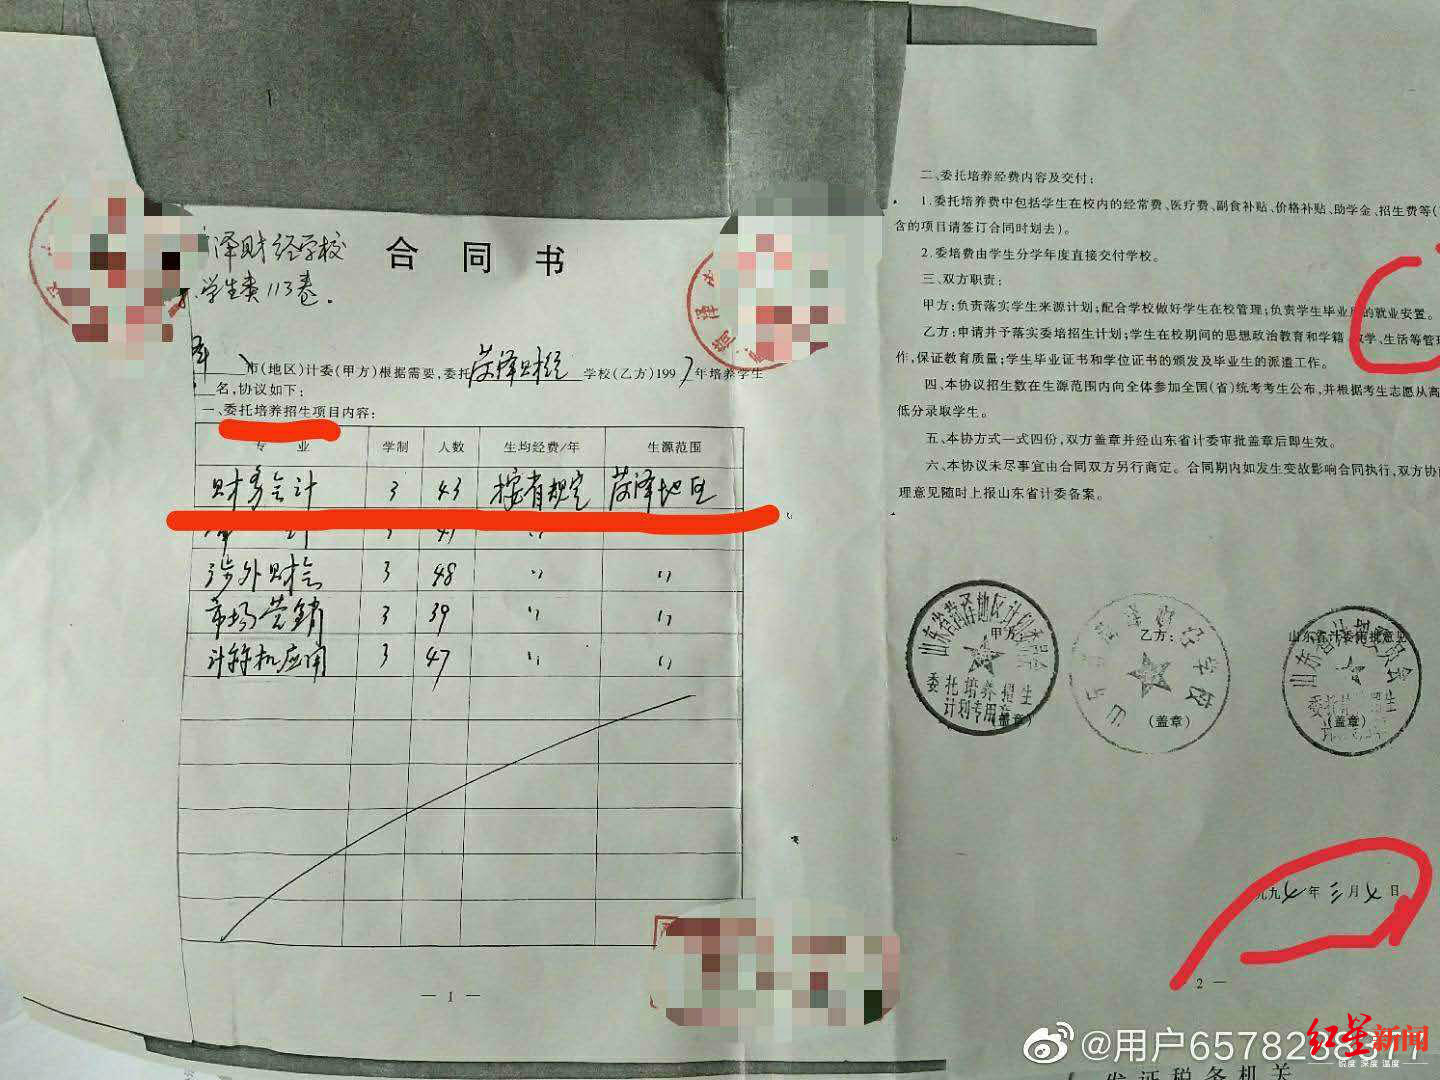 泽财经学校
学生类113卷.
合同书
市(地区)计委(甲方)根据需要,委托菏泽财经学校(乙方)1997年培养学生
名,协议如下:
一、委托培养招生项目内容:
专业 学制 人数 生均经费/年 生源范围
财务会计 3 43 按省规定 菏泽地区
涉外财会 3 48 〃 〃
市场营销 3 39 〃 〃
计算机应用 3 47 〃 〃
— 1 —
二、委托培养经费内容及交付:
1.委托培养费中包括学生在校内的经常费、医疗费、副食补贴、价格补贴、助学金、招生费等(
含的项目请签订合同时划去)。
2.委培费由学生分学年度直接交付学校。
三、双方职责:
甲方:负责落实学生来源计划;配合学校做好学生在校管理;负责学生毕业后的就业安置。
乙方:申请并予落实委培招生计划;学生在校期间的思想政治教育和学籍、教学、生活等管理
作,保证教育质量;学生毕业证书和学位证书的颁发及毕业生的派遣工作。
四、本协议招生数在生源范围内向全体参加全国(省)统考考生公布,并根据考生志愿从高
低分录取学生。
五、本协方式一式四份,双方盖章并经山东省计委审批盖章后即生效。
六、本协议未尽事宜由合同双方另行商定。合同期内如发生变故影响合同执行,双方协
理意见随时上报山东省计委备案。
甲方:
乙方:
山东省计委审批意见
(盖章)
(盖章)
(盖章)
山东省菏泽地区计划委员会
委托培养招生
计划专用章
山东省菏泽财经学校
山东省计划委员会
九九七年三月七日
2 —
@用户6578238377
红星新闻
锐度 深度 温度
发证税务机关